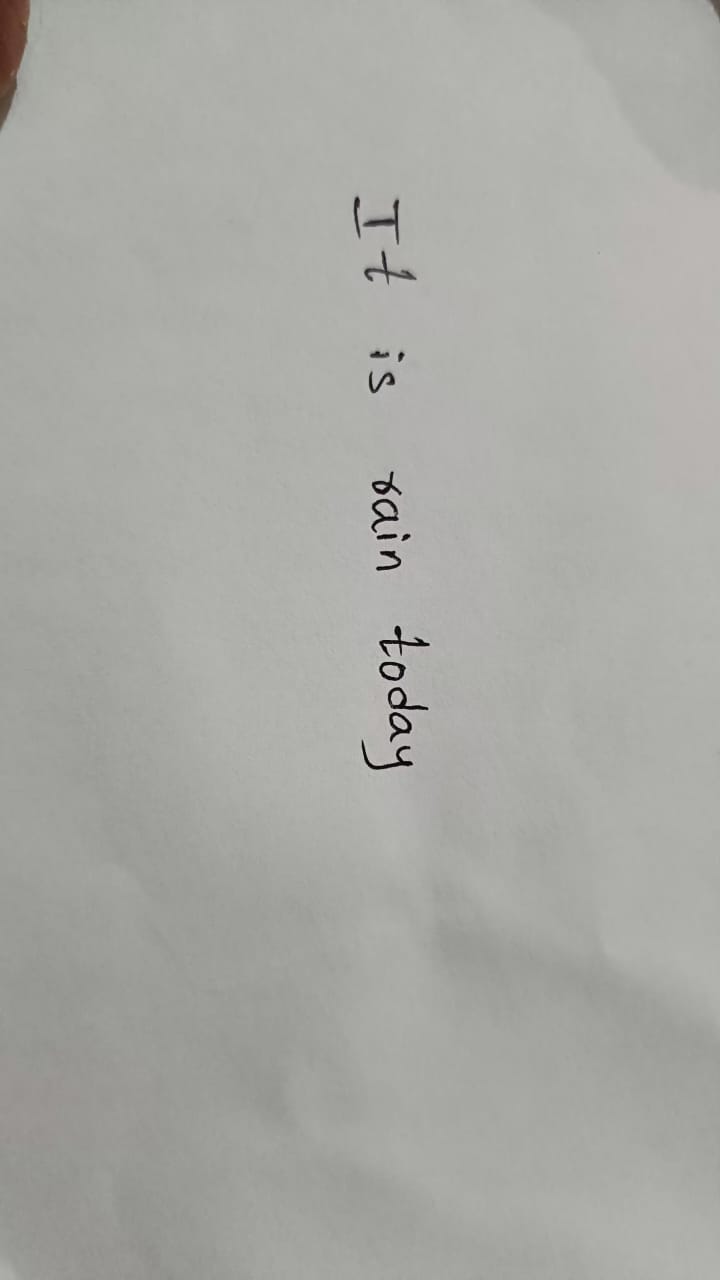 It is rain today